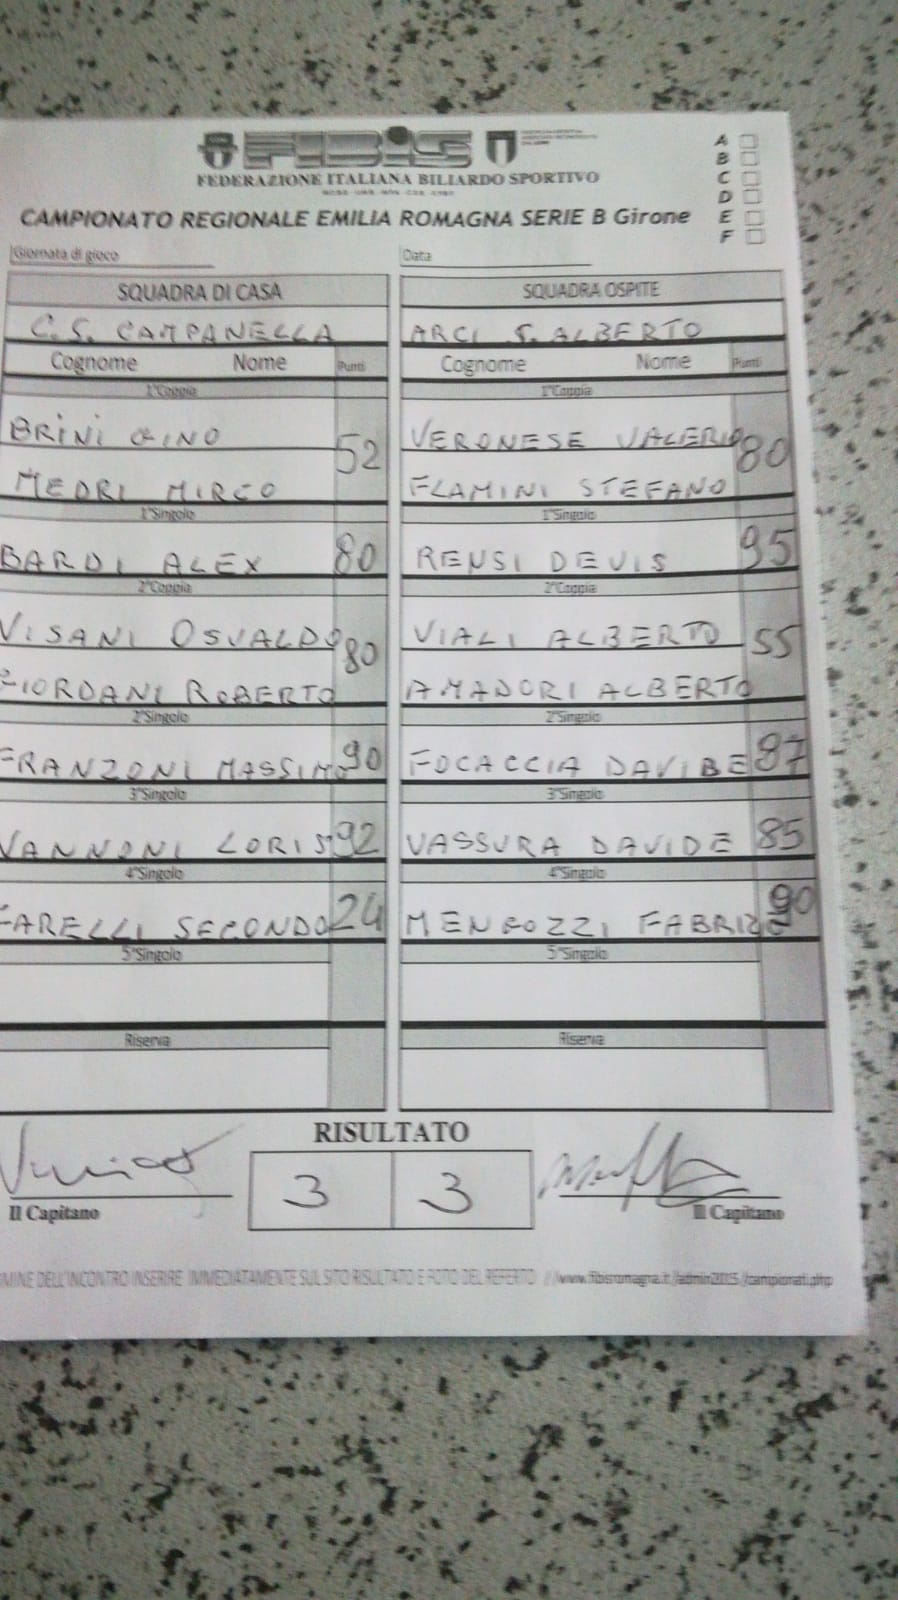 FIBIS
FEDERAZIONE ITALIANA BILIARDO SPORTIVO
CAMPIONATO REGIONALE EMILIA ROMAGNA SERIE B Girone
A
B
C
D
E
F
Giornata di gioco
Data
SQUADRA DI CASA
SQUADRA OSPITE
C.S. CAMPANELLA
ARCI S. ALBERTO
Cognome Nome Punti
Cognome Nome Punti
1°Coppia
1°Coppia
BRINI GINO
52
MEDRI MIRCO
VERONESE VALERIO
80
FLAMINI STEFANO
1°Singolo
1°Singolo
BARDI ALEX 80
RENSI DEVIS 95
2°Coppia
2°Coppia
VISANI OSVALDO
80
GIORDANI ROBERTO
VIALI ALBERTO
55
AMADORI ALBERTO
2°Singolo
2°Singolo
FRANZONI MASSIMO 90
FOCACCIA DAVIDE 87
3°Singolo
3°Singolo
VANNONI LORIS 92
VASSURA DAVIDE 85
4°Singolo
4°Singolo
FARELLI SECONDO 24
MENGOZZI FABRIZIO 90
5°Singolo
5°Singolo
Riserva
Riserva
RISULTATO
3 3
Il Capitano
Il Capitano
MINE DELL'INCONTRO INSERIRE IMMEDIATAMENTE SUL SITO RISULTATO E FOTO DEL REFERTO //www.fibisromagna.it/admin2015/campionati.php